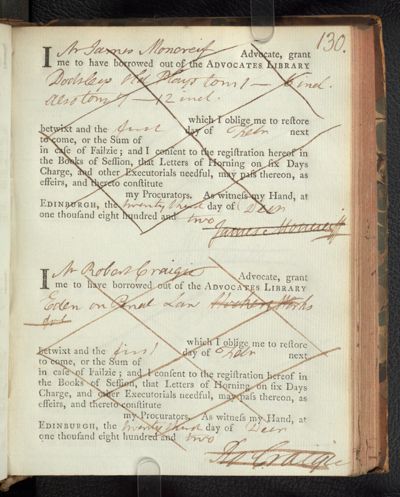 130.
I Mr James Moncreiff Advocate, grant
me to have borrowed out of the ADVOCATES LIBRARY
Dodsleys Old Plays tom 1 — 6 incl.
also tom 7 — 12 incl.
which I oblige me to reſtore
betwixt and the first day of Febr next
to come, or the Sum of
in caſe of Failzie; and I conſent to the regiſtration hereof in
the Books of Seſſion, that Letters of Horning on ſix Days
Charge, and other Executorials needful, may paſs thereon, as
effeirs, and thereto conſtitute
my Procurators. As witneſs my Hand, at
EDINBURGH, the twenty third day of Decr
one thouſand eight hundred and two
James Moncreiff
I Mr Robert Craigie Advocate, grant
me to have borrowed out of the ADVOCATES LIBRARY
Eden on Penal Law Works
which I oblige me to reſtore
betwixt and the first day of Febr next
to come, or the Sum of
in caſe of Failzie; and I conſent to the regiſtration hereof in
the Books of Seſſion, that Letters of Horning on ſix Days
Charge, and other Executorials needful, may paſs thereon, as
effeirs, and thereto conſtitute
my Procurators. As witneſs my Hand, at
EDINBURGH, the twenty third day of Decr
one thouſand eight hundred and two
Ro Craigie